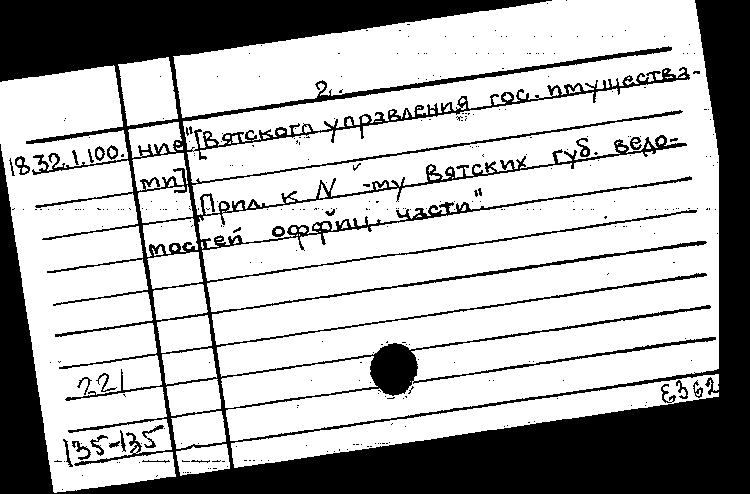 2.
18.32.1.100. ние "[Вятского управления гос. имущества-
ми].
"Прил. к N -му Вятских губ. ведо-
мостей оффиц. части".
221
135-135
Е362